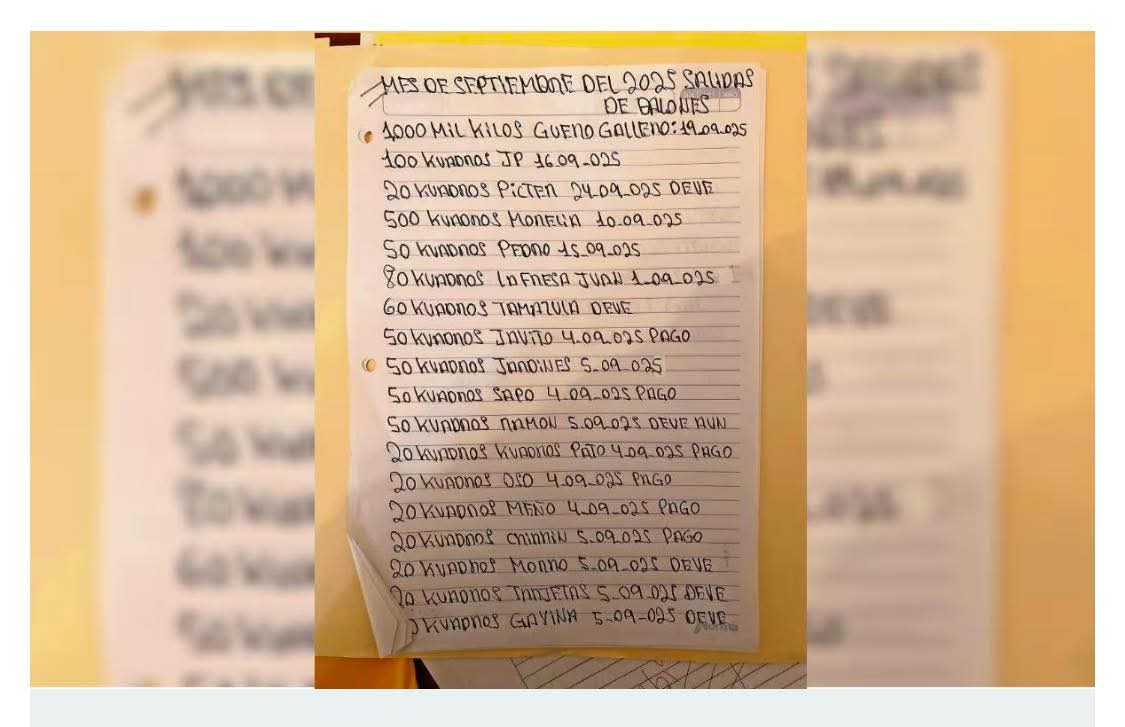 MES DE SEPTIEMBRE DEL 2025 SALIDAS
DE BALONES
1000 MIL KILOS GUERO GALLERO: 19.09.025
100 KUADROS JP 16.09_025
20 KUADROS PICTER 24.09_025 DEVE
500 KUADROS MORELIA 10.09_025
50 KUADROS PEDRO 15.09_025
80 KUADROS LA FRESA JUAN 1_09_025
60 KUADROS TAMAZULA DEVE
50 KUADROS JAVITO 4.09_025 PAGO
50 KUADROS JARDINES 5_09_025
50 KUADROS SAPO 4.09_025 PAGO
50 KUADROS RAMON 5.09.025 DEVE AUN
20 KUADROS KUADROS PATO 4.09_025 PAGO
20 KUADROS OSO 4.09_025 PAGO
20 KUADROS MEÑO 4.09_025 PAGO
20 KUADROS CHIRRIN 5.09.025 PAGO
20 KUADROS MORRO 5_09_025 DEVE
20 KUADROS TARJETAS 5_09_025 DEVE
KUADROS GAVINA 5-09-025 DEVE
Norma